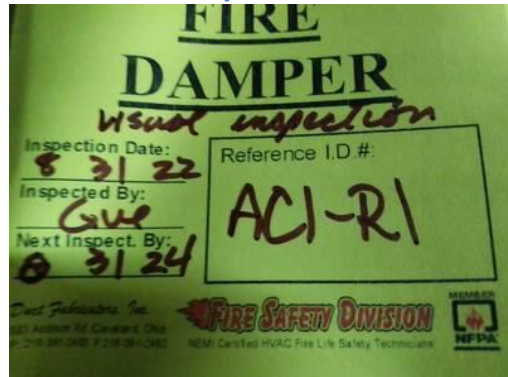 FIRE
DAMPER
visual inspection
Inspection Date:
8 31 22
Inspected By:
Next Inspect. By:
8 31 24
Reference I.D.#:
AC1-R1
Duct Fabricators, Inc.
Addison Rd. Cleveland, Ohio
FIRE SAFETY DIVISION
NEMI Certified HVAC Fire Life Safety Technicians
MEMBER
NFPA